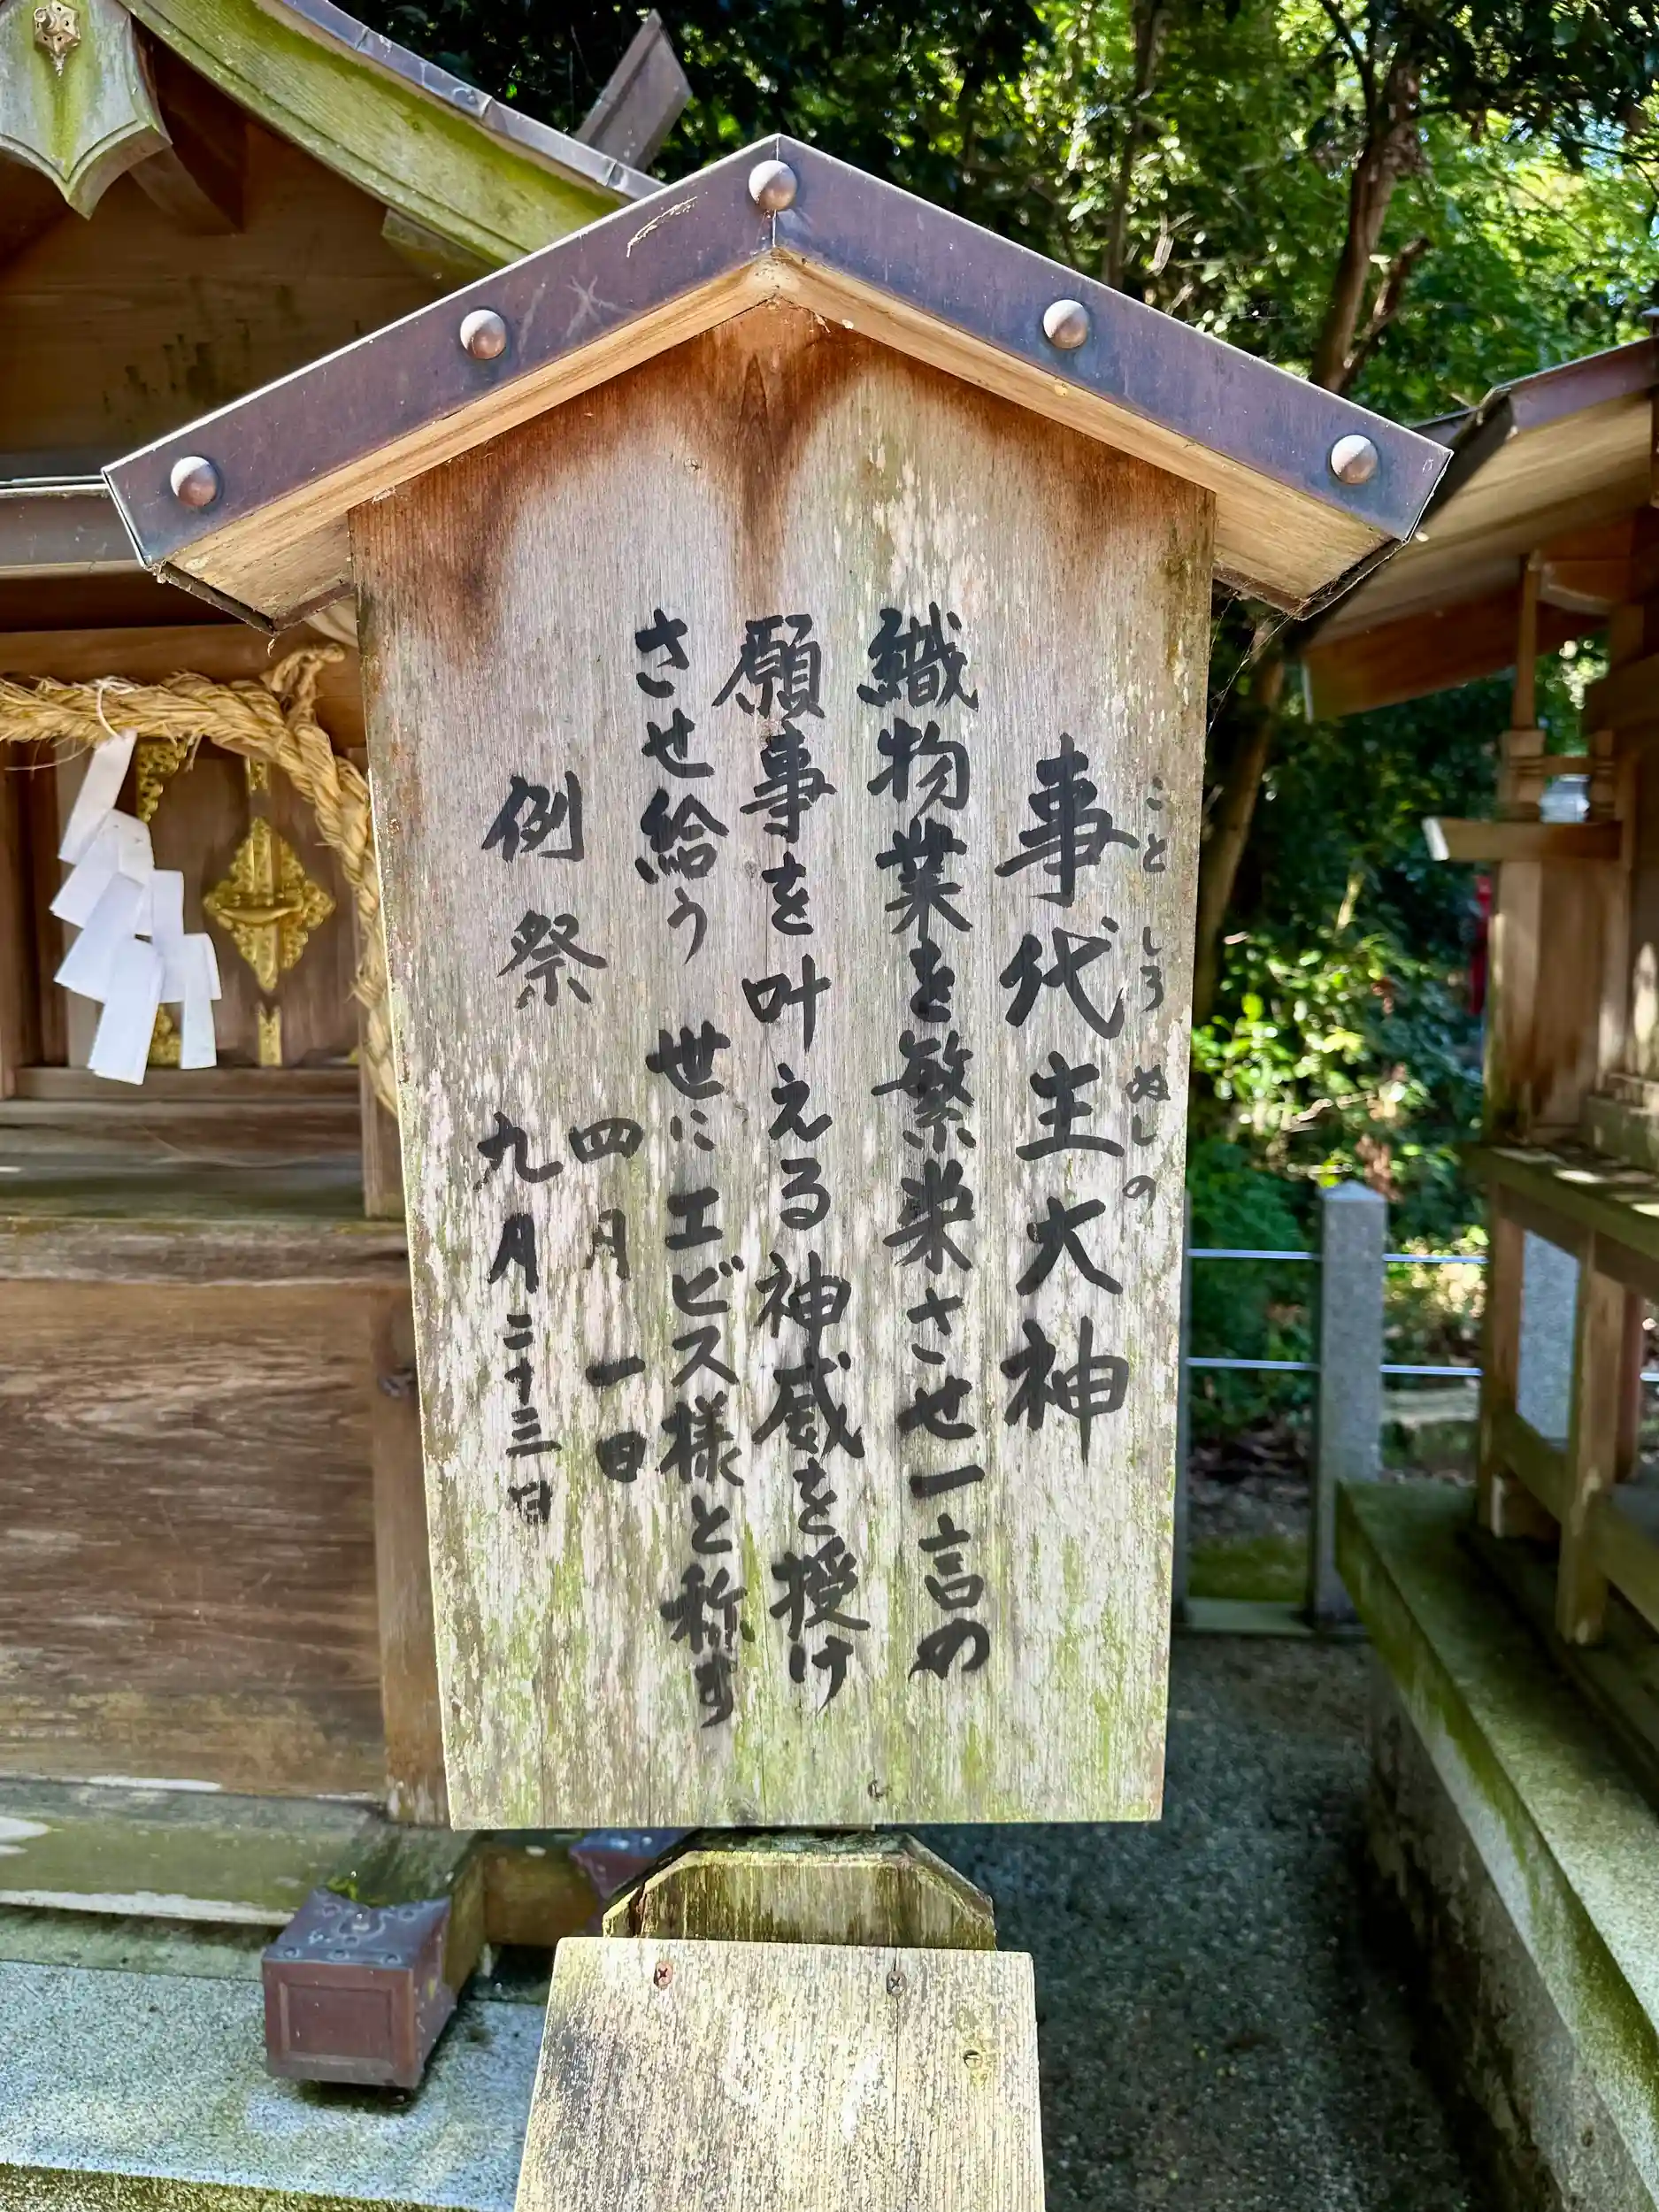 事代主大神
ことしろぬしの
織物業を繁栄させ一言の
願事を叶える神威を授け
させ給う 世に エビス様と称す
例祭
四月一日
九月二十三日